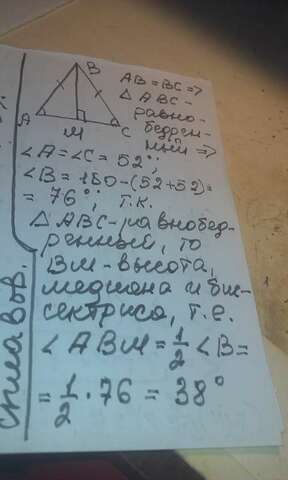 B
AB = BC =>
△ ABC -
равно-
бедрен-
ный =>
A
M
C
∠A = ∠C = 52°;
∠B = 180 - (52+52) =
= 76°; т.к.
△ ABC - равнобед-
ренный, то
BM - высота,
медиана и бис-
сектриса, т.е.
∠ ABM = 1/2 ∠B =
= 1/2 · 76 = 38°